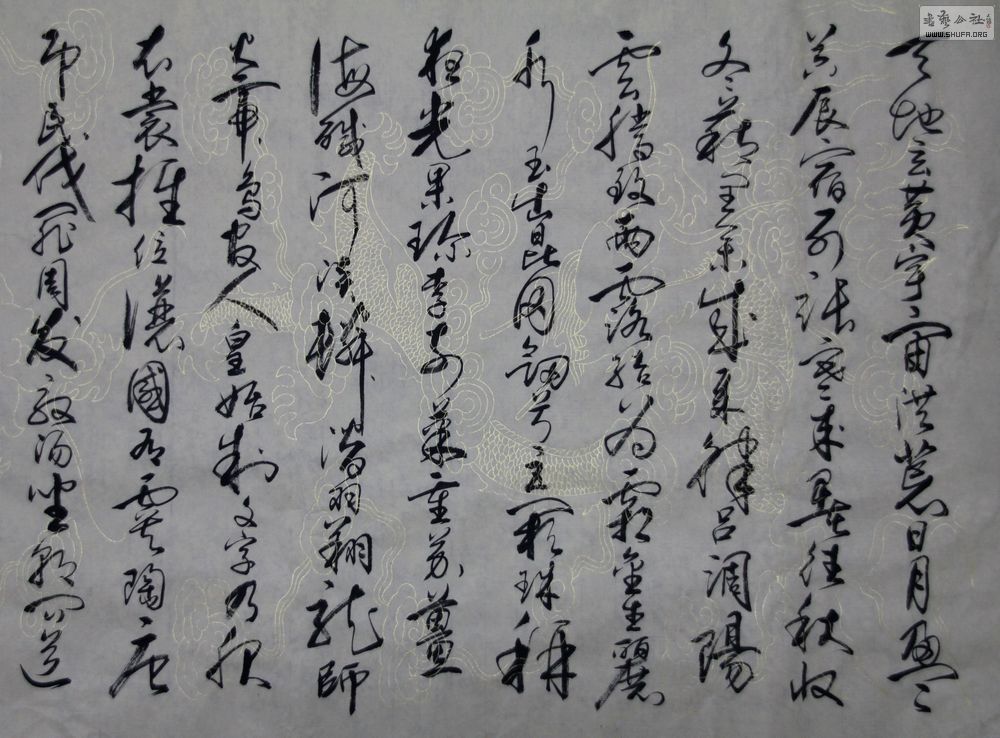 天地玄黄宇宙洪荒日月盈
昃辰宿列張寒來暑往秋收
冬藏閏余成歲律呂調陽
雲騰致雨露結為霜金生麗
水玉出崑岡劍號巨闕珠稱
夜光果珍李柰菜重芥薑
海鹹河淡鱗潛羽翔龍師
火帝鳥官人皇始制文字乃服
衣裳推位讓國有虞陶唐
吊民伐罪周發殷湯坐朝問道
書藝公社
WWW.SHUFA.ORG